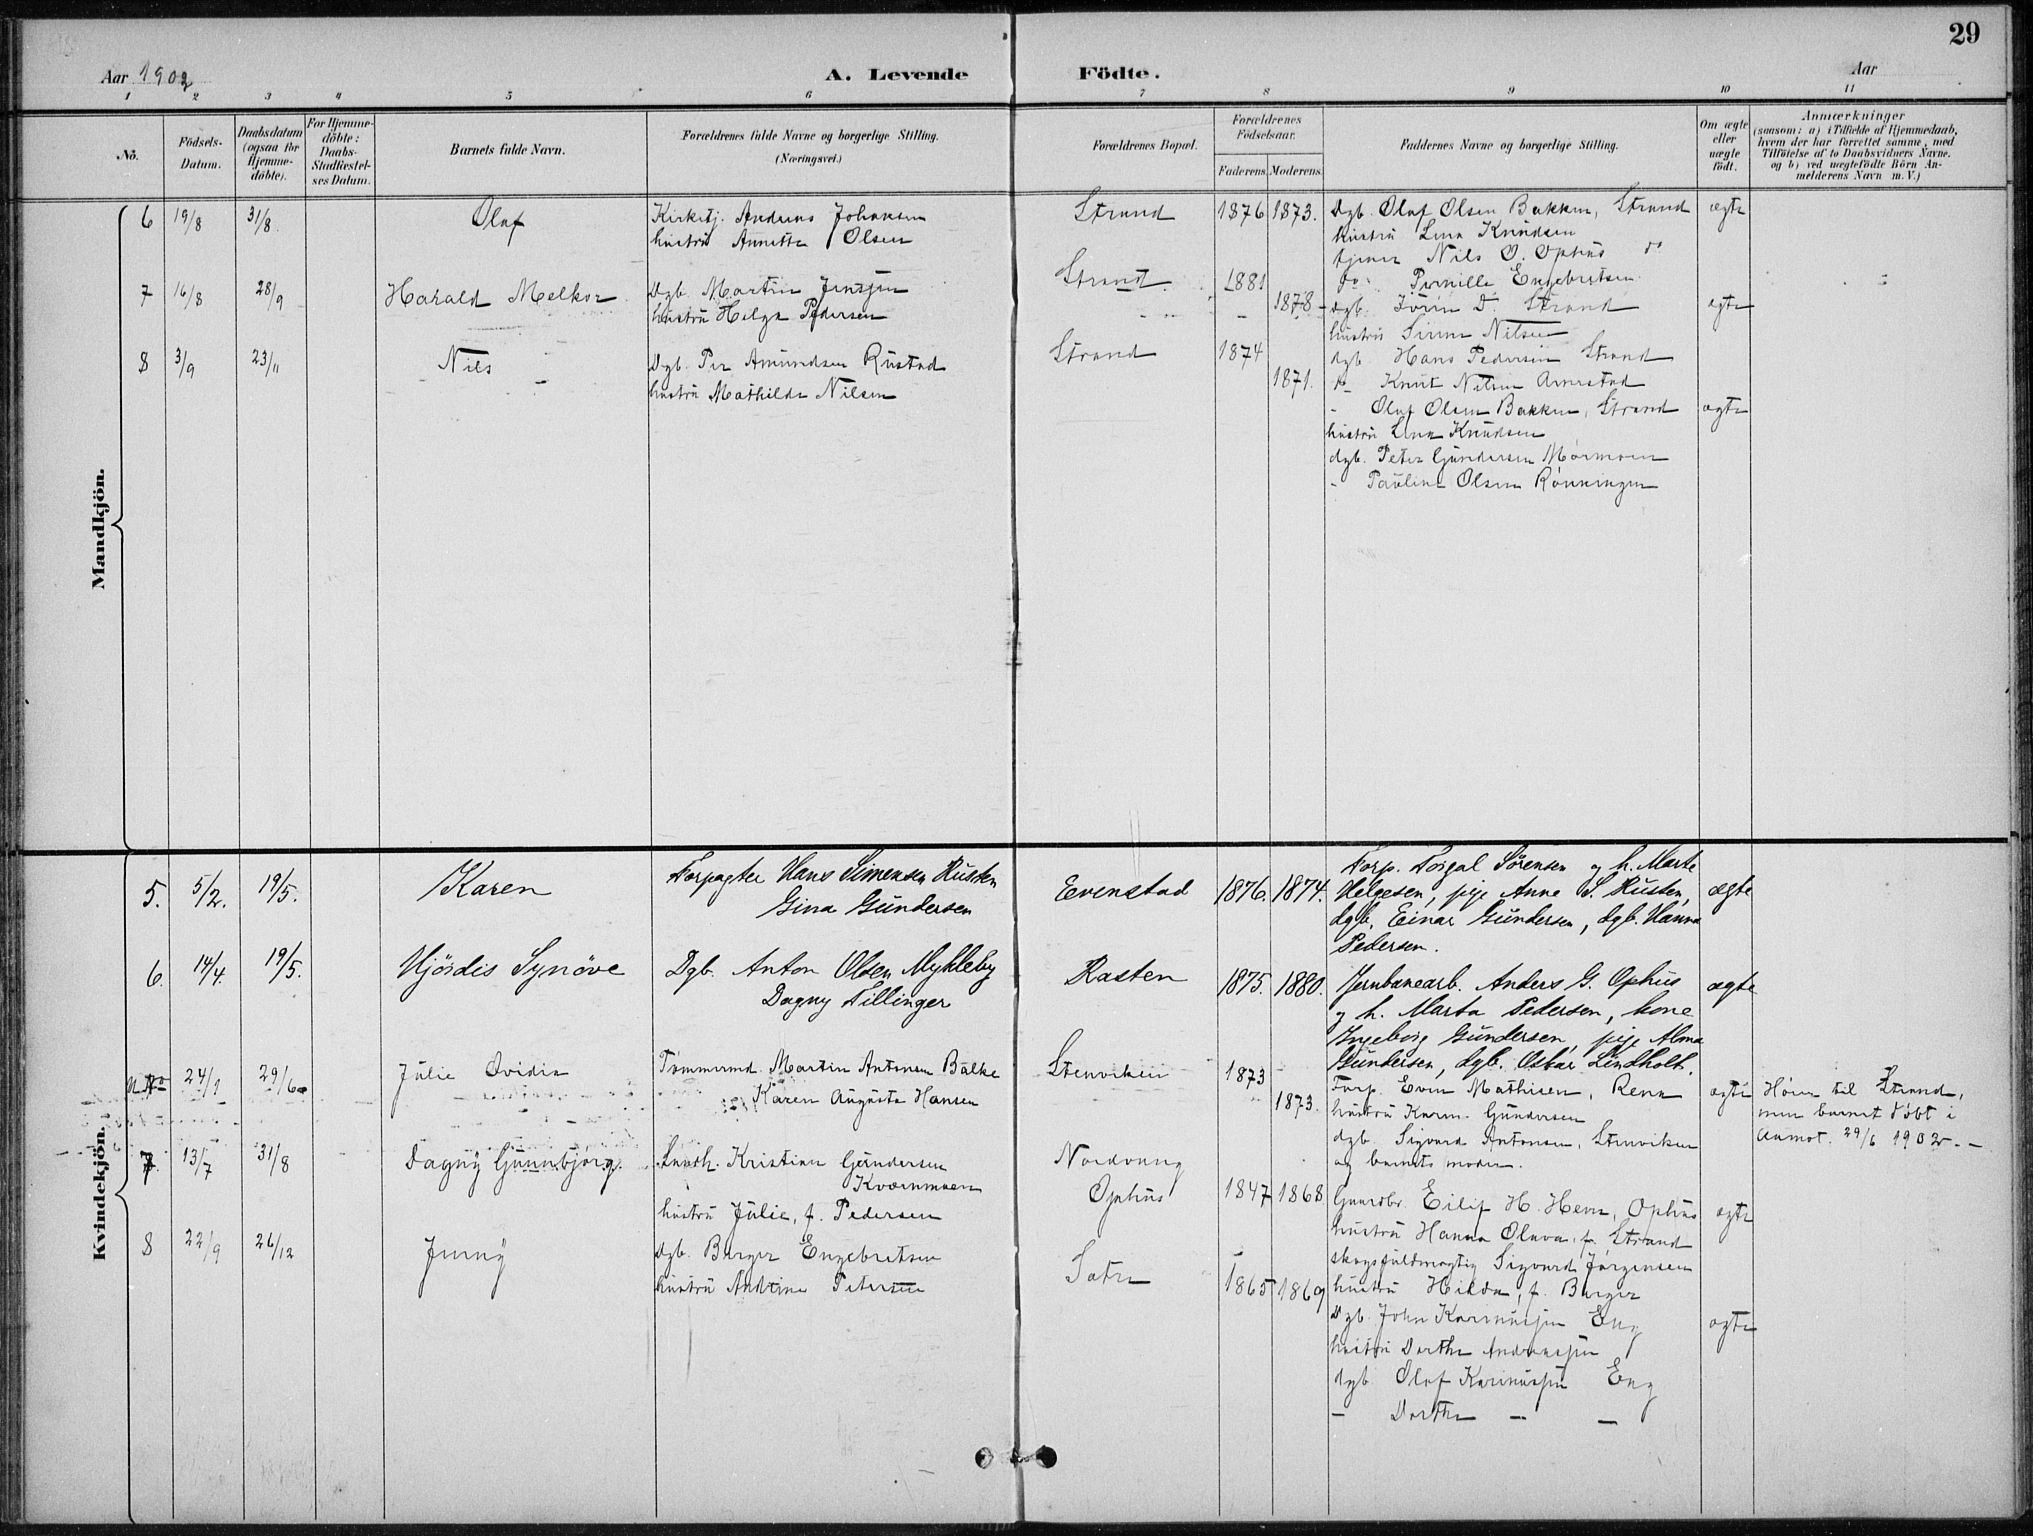 29
Aar 1902 A. Levende Födte. Aar
1 2 3 4 5 6 7 8 9 10 11
No.
Födsels-
Datum.
Daabsdatum
(ogsaa for
Hjemme-
döbte).
For Hjemme-
döbte:
Daabs-
Stadfæstel-
ses Datum.
Barnets fulde Navn.
Forældrenes fulde Navne og borgerlige Stilling.
(Næringsvei.)
Forældrenes Bopæl.
Forældrenes
Födselsaar.
Faderens. Moderens.
Faddernes Navne og borgerlige Stilling.
Om ægte
eller
uægte
födt.
Anmærkninger
(saasom: a) i Tilfælde af Hjemmedaab,
hvem der har forrettet samme, med
Tilföielse af to Daabsvidners Navne,
og b) ved uægtefödte Börn An-
melderens Navn m. V.)
Mandkjön.
6 19/8 31/8 Olaf
Kirketj. Andreas Johansen
hustru Annette Olsen
Strand 1876 1873.
Dgb. Olaf Olsen Bakken, Strand
hustru Lina Knudsen
tjener Nils O. Ophus do
do Pernille Engebretsen
ægte
7 16/8 28/9 Harald Melkor
Dgb. Martin Jensen
hustru Helga Pedersen
Strand 1881
1878
dgb. Iver D. Strand
hustru Sinne Nilsen
dgb. Hans Pedersen Strand
do Knut Nilsen Arnestad
ægte
8 3/9 23/11 Nils
Dgb. Per Amundsen Rustad
hustru Mathilde Nilsen
Strand 1874
1871.
- Olaf Olsen Bakken, Strand
hustru Lina Knudsen
dgb. Peter Gundersen Mörmoen
- Pauline Olsen Rönningen
ægte
Kvindekjön.
5. 5/2. 19/5. Karen
Forpagter Hans Simensen Rusten
Gina Gundersen
Evenstad 1876. 1874.
Forp. Torgal Sørensen og h. Marte
Helgesen, pige Anne S. Rusten,
dgb. Einar Gundersen, dgb. Hanna
Pedersen.
ægte
6. 14/4. 19/5. Hjördis Synöve
Dgb. Anton Olsen Mykleby
Dagny Tillinger
Rasten 1875. 1880.
Jernbanearb. Anders G. Ophus
og h. Marta Pedersen, kone
Ingeborg Gundersen, pige Alma
Gundersen, dgb. Oskar Lindholt.
ægte
u. No 24/1 29/6 Julie Ovidia
Tömmermd. Martin Antonsen Bälke
Karen Augusta Hansen
Stenviken 1873
1873.
Forp. Even Mathisen, Rena
hustru Karen Gundersen
dgb. Sigvard Antonsen, Stenviken
og barnets moder.
ægte
Hörer til Strand,
men barnet döbt i
Aamot. 29/6 1902. -
7. 13/7 31/8 Dagny Gunnbjørg.
Kristian Gundersen
Kværnmoen
hustru Julie, f. Pedersen
Nordvang
Ophus
1847 1868
Gaardbr. Eilif H. Hem, Ophus
hustru Hanna Olava f. Strand
skogsfuldmægtig Sigvard Jørgensen
hustru Hilda, f. Berger
ægte
8 22/9 26/12 Jenny
Dgb. Berger Engebretsen
hustru Andrine Petersen
Sætre 1865 1869
Dgb. John Karinusjen Eng
hustru Dorthe Andreasjen
dgb. Olaf Karinusjen Eng
- Dorthe - -
ægte